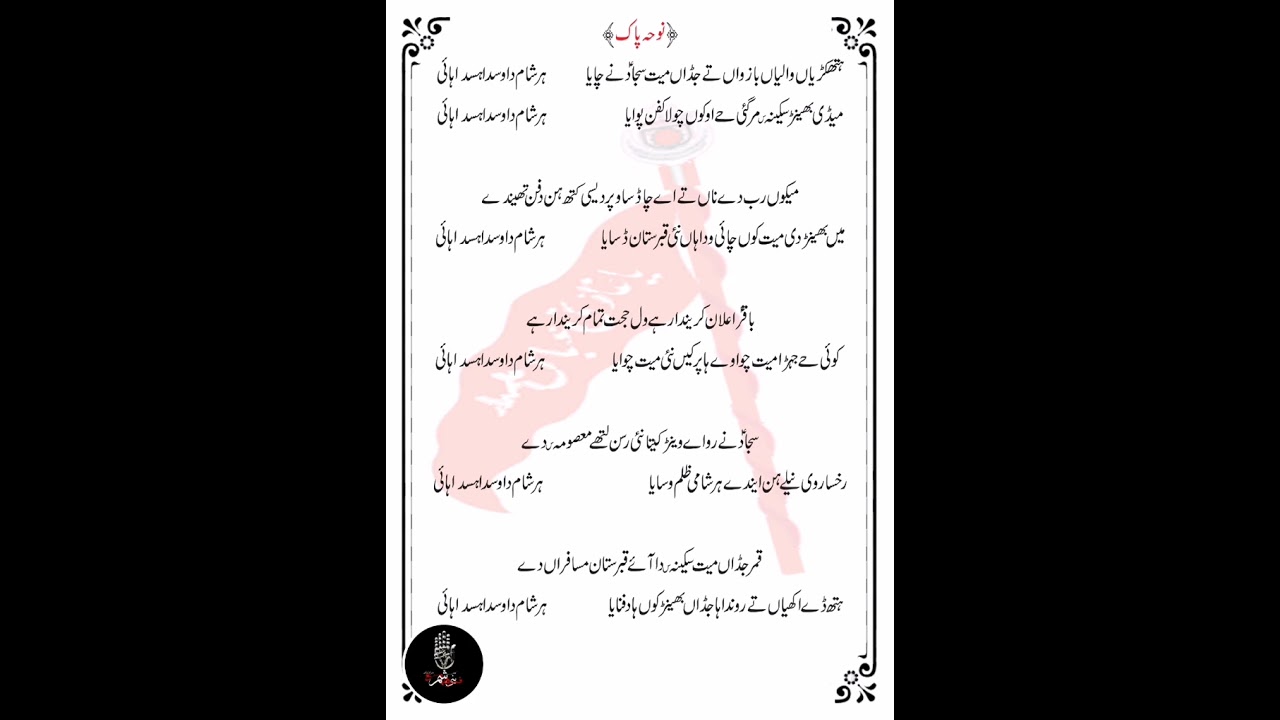 ﴿نوحہ پاک﴾
ہتھکڑیاں والیاں بازواں تے جڈاں میت سجادؑ نے چایا ہر شام دا وسدا ہسدا ہائی
میڈی بھینڑ سکینہؑ مر گئی حے اوکوں چولا کفن پوایا ہر شام دا وسدا ہسدا ہائی
میکوں رب دے ناں تے اے چا ڈساو پردیسی کتھ ہن دفن تھیندے
میں بھینڑ دی میت کوں چائی ودا ہاں نئی قبرستان ڈسایا ہر شام دا وسدا ہسدا ہائی
باقرؑ اعلان کریندا رہے ول حجت تمام کریندا رہے
کوئی حے جہڑا میت چواوے ہا پر کیں نئی میت چوایا ہر شام دا وسدا ہسدا ہائی
سجادؑ نے روا اے وینڑ کیتا نئی رسن لتھے معصومہؑ دے
رخسار وی نیلے ہن ایندے ہر شامی ظلم وسایا ہر شام دا وسدا ہسدا ہائی
قمر جڈاں میت سکینہؑ دا آئے قبرستان مسافراں دے
ہتھ ڈے اکھیاں تے روندا ہا جڈاں بھینڑ کوں ہا دفنایا ہر شام دا وسدا ہسدا ہائی